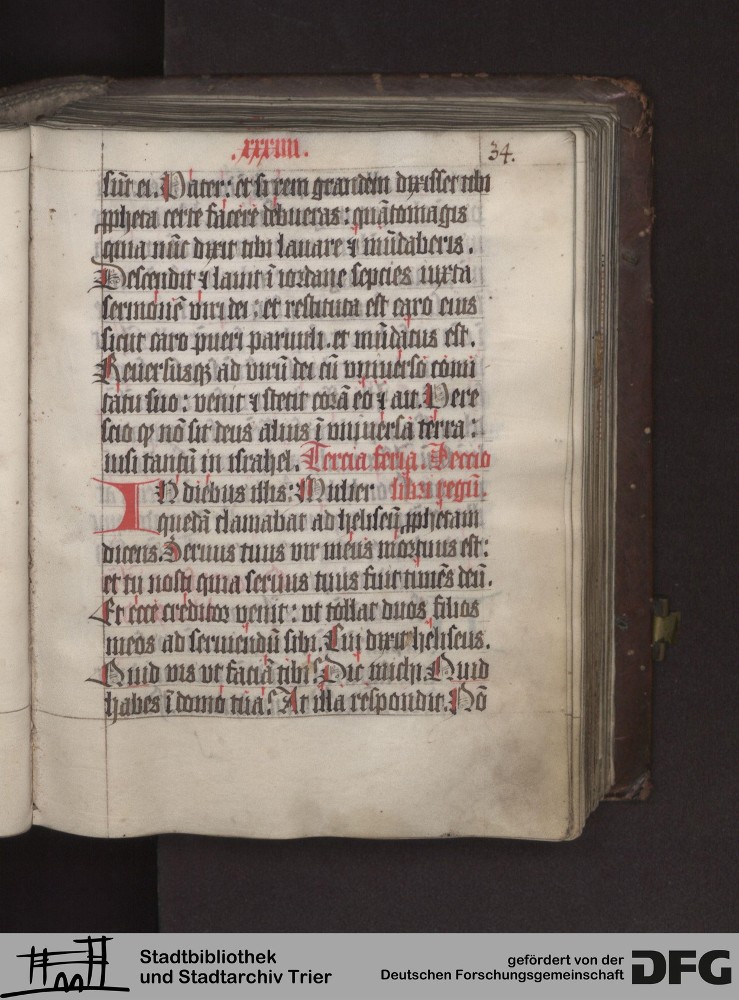 .xxxiiii.
34.
sūt ei. Pater: et si rem grandem dixisset tibi
ꝓpheta certe facere debueras: quātomagis
quia nūc dixit tibi lauare ⁊ mūdaberis.
Descendit ⁊ lauit ī iordane septies iuxta
sermonē viri dei: et restituta est caro eius
sicut caro pueri paruuli. et mūdatus est.
Reuersusqꝫ ad virū dei cū vniuerso comi
tatu suo: venit ⁊ stetit corā eo ⁊ ait. Vere
scio ꝙ nō sit deus alius ī vniuersa terra:
nisi tantū in israhel. Tercia feria. Leccio
IN diebus illis: Mulier libri regū.
quedā clamabat ad heliseū ꝓphetam
dicens. Seruus tuus vir meus mortuus est:
et tu nosti quia seruus tuus fuit timēs deū.
Et ecce creditor venit: vt tollat duos filios
meos ad seruiendū sibi. Cui dixit heliseus.
Quid vis vt faciā tibi? Dic michi. Quid
habes ī domo tua? At illa respondit. Nō
Stadtbibliothek
und Stadtarchiv Trier
gefördert von der
Deutschen Forschungsgemeinschaft
DFG